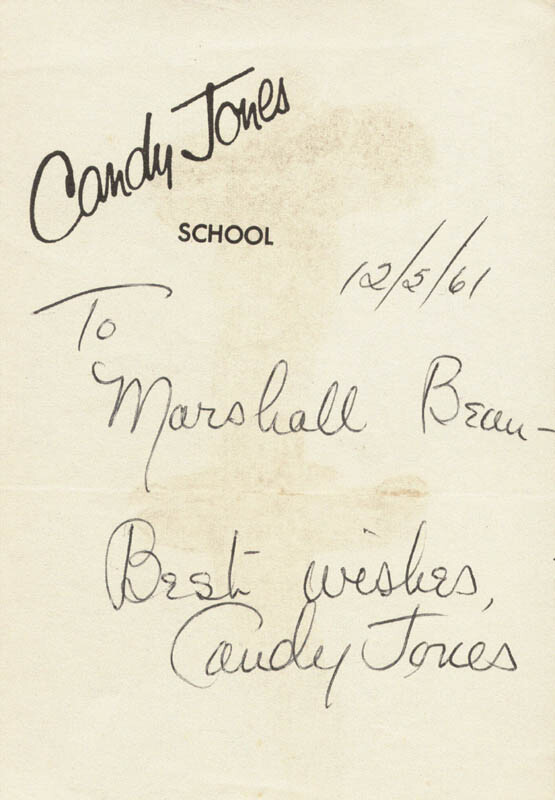 Candy Jones
SCHOOL
12/5/61
To
Marshall Bean-
Best wishes,
Candy Jones